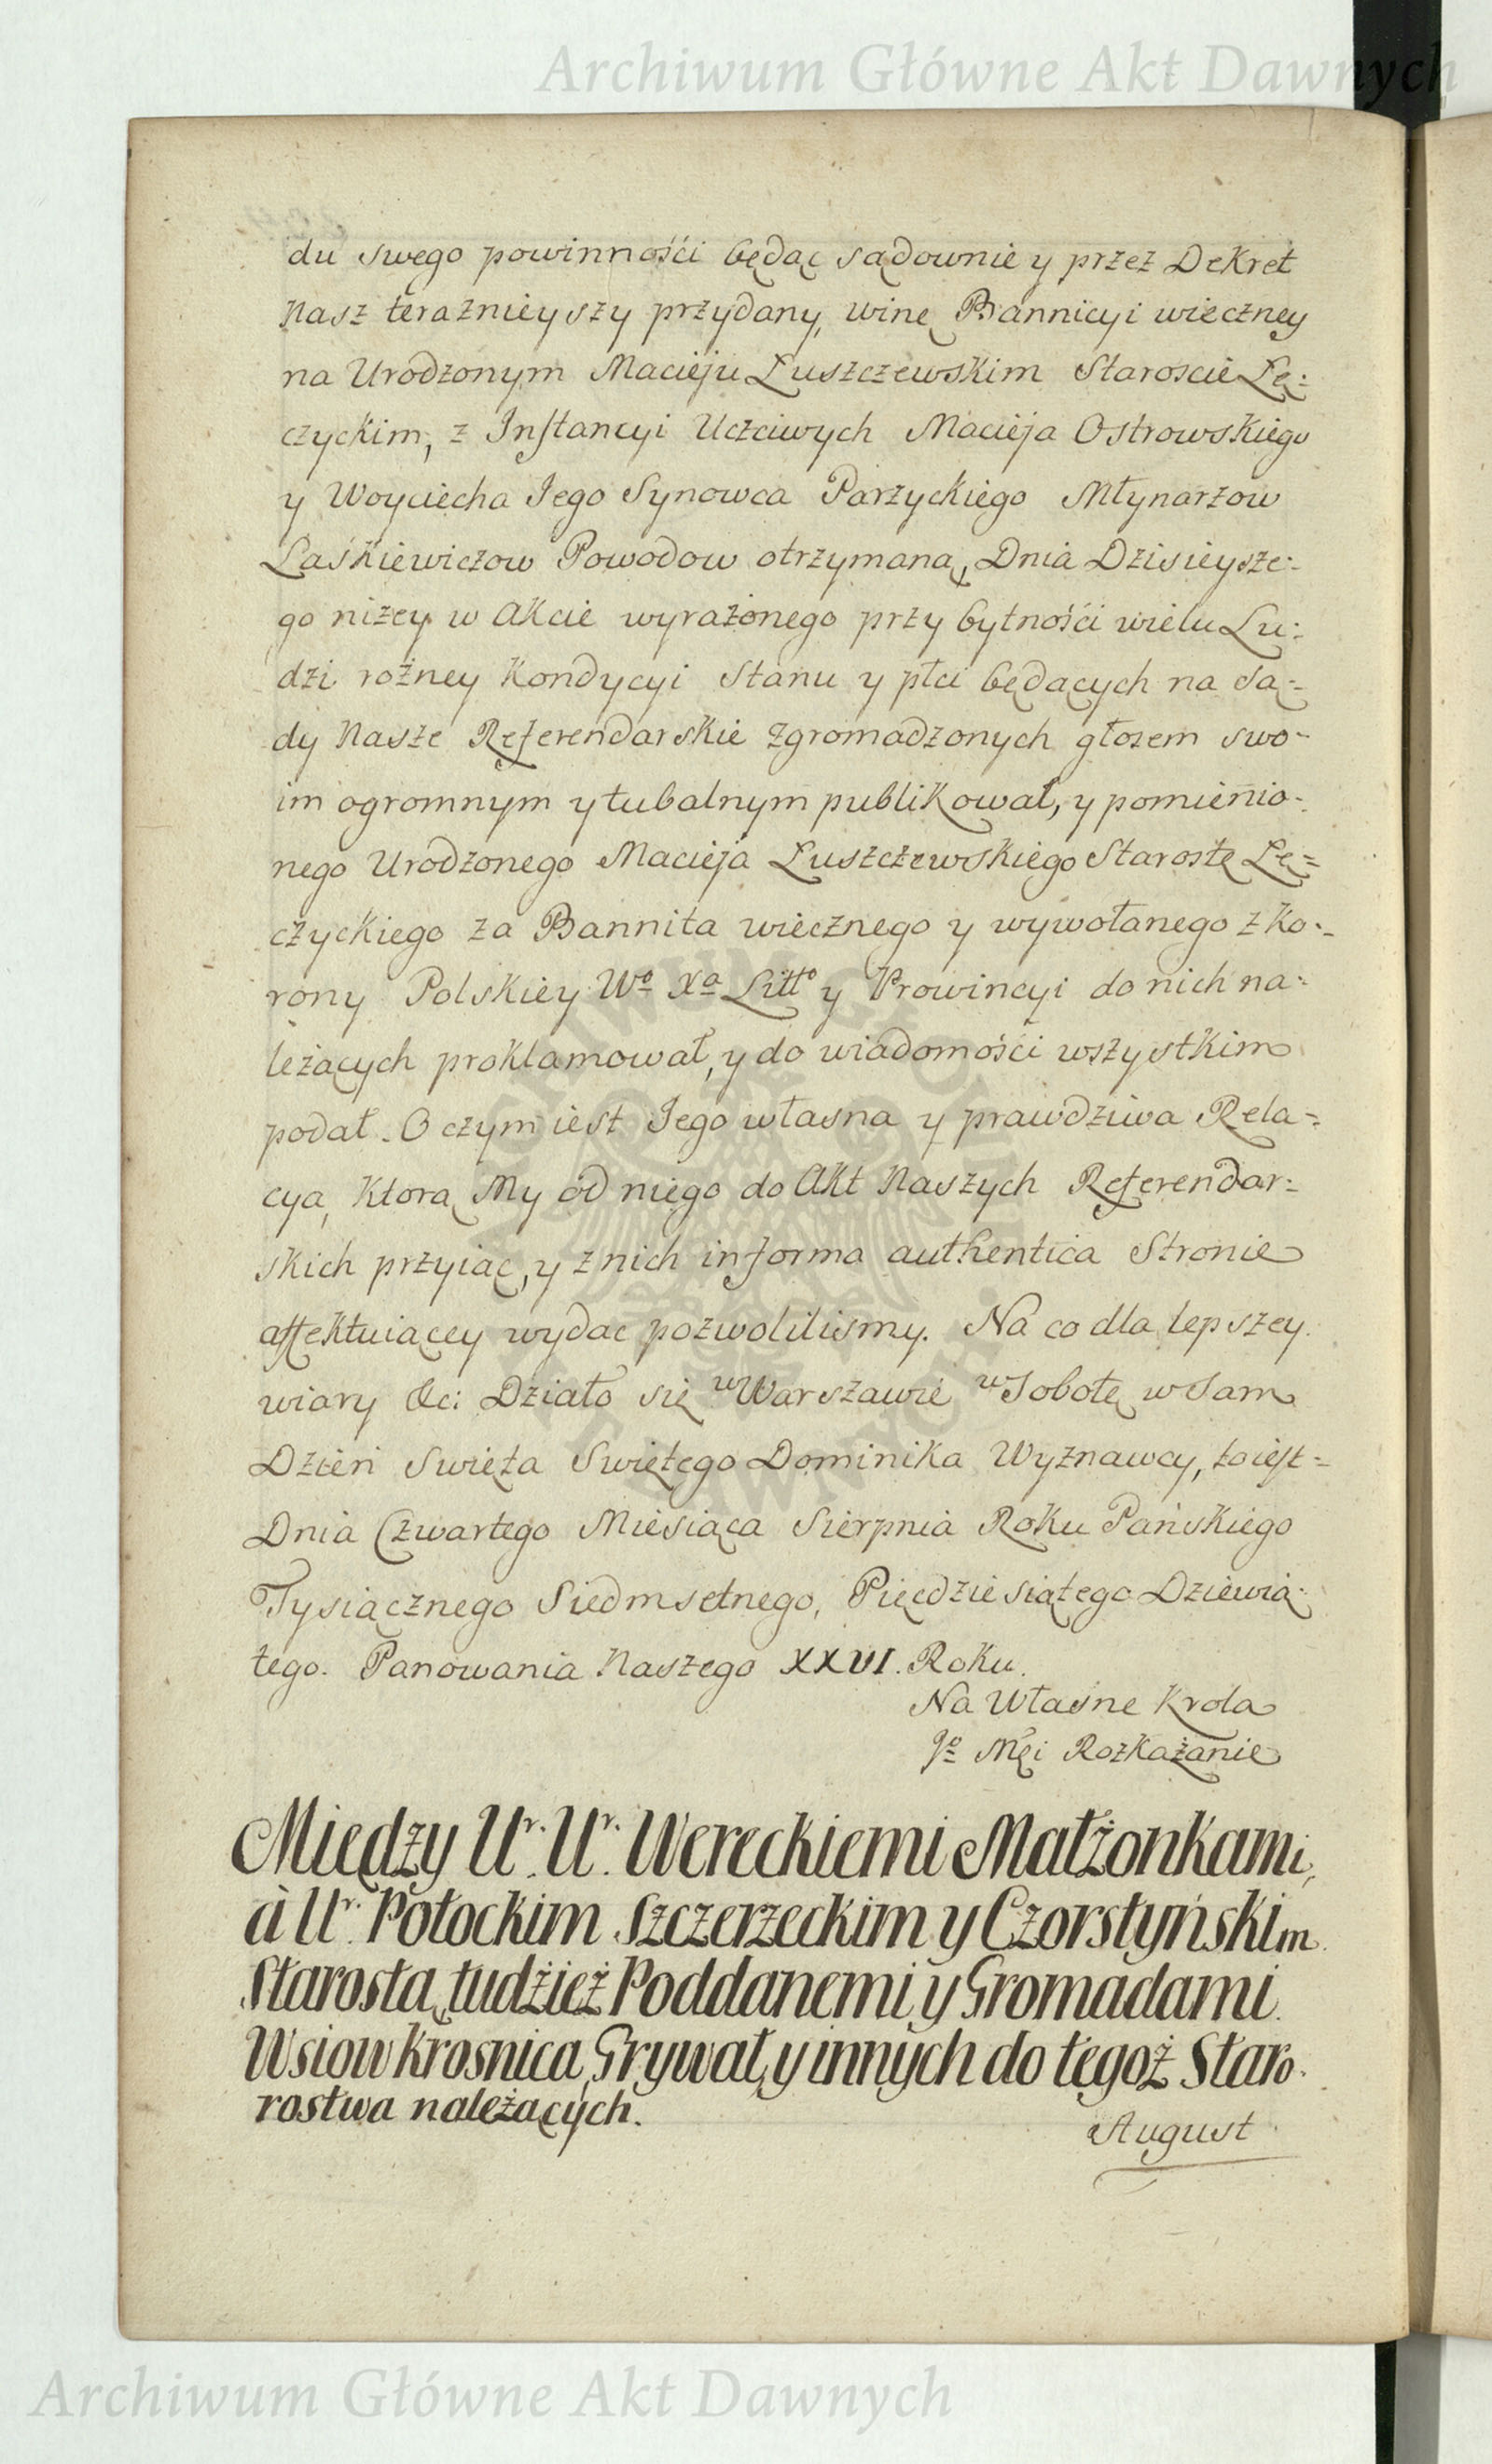 Archiwum Główne Akt Dawnych
du swego powinnośći będąc sądownie y przez Dekret
Nasz teraznieyszy przydany, winę Bannicyi wieczney
na Urodzonym Macieju Łuszczewskim Staroscie Łę=
czyckim, z Instancyi Uczciwych Macieja Ostrowskiego
y Woyciecha Jego Synowca Parzyckiego Młynarzow
Laskiewiczow Powodow otrzymaną, Dnia Dzisieysze=
go niżey w Akcie wyrażonego przy bytnośći wielu Lu=
dzi rożney Kondycyi Stanu y płci będących na Są=
dy Nasze Referendarskie zgromadzonych głosem swo=
im ogromnym y tubalnym publikował, y pomienio=
nego Urodzonego Macieja Łuszczewskiego Starostę Łę=
czyckiego za Bannita wiecznego y wywołanego z Ko=
rony Polskiey Wo Xa Litto y Prowincyi do nich na=
leżących proklamował, y do wiadomośći wszystkim
podał. O czym iest Jego własna y prawdziwa Rela=
cya, Ktorą My od niego do Akt Naszych Referendar=
skich przyiąc, y z nich in forma authentica Stronie
affektuiącey wydac pozwolilismy. Na co dla lepszey
wiary &c: Działo się w Warszawie w Sobotę w Sam
Dzień Swięta Swiętego Dominika Wyznawcy, to iest=
Dnia Czwartego Miesiąca Sierpnia Roku Pańskiego
Tysiącznego Siedmsetnego, Pięcdziesiątego Dziewią=
tego. Panowania Naszego XXVI. Roku.
Na Własne Krola
Jo Mci Rozkażanie
Między Ur. Ur. Wereckiemi Małżonkami,
à Ur. Potockim Szczerzeckim y Czorstyńskim
Starostą tudzież Poddanemi y Gromadami
Wsiow Krosnica, Grywał, y innych do tegoż Staro=
rostwa należących.
August
Archiwum Główne Akt Dawnych